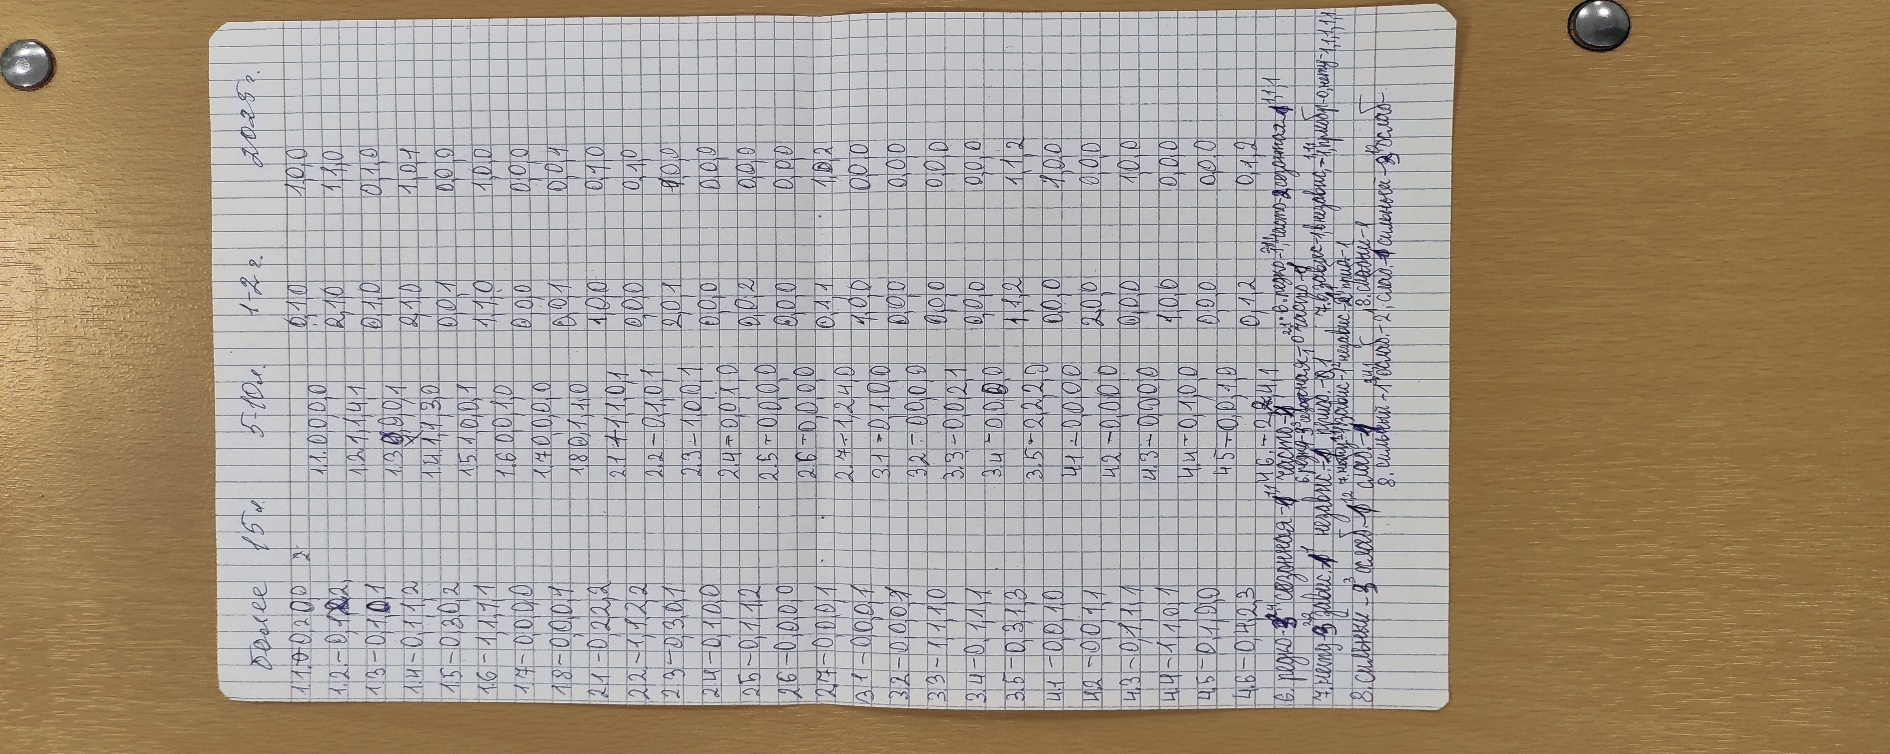 более 15 л 5-10л. 1-2 г. 2025 г.
1.1.-0 0 2 0 0 2 1.1. 0 0 0 0 0,1,0 1,0,0
1.2.-0,1 2,2 1.2 1,1,4,1 2,1,0 1,1,0
1.3-0,1,0,1 1.3 0,0,1 0,1,0 0,1,0
1.4-0,1,1,2 1.4 1,1,3,0 2,1,0 1,0,1
1.5-0,3,0,2 1.5 1,0,0,1 0,0,1 0,0,0
1.6-1,1,1,1 1.6 0,0,1,0 1,1,0 1,0,0
1.7-0,0,0,0 1.7 0,0,0,0 0,0,0 0,0,0
1.8-0,0,0,1 1.8 0,1,1,0 0,0,1 0,0,1
2.1-0,2,2,2 2.1-1,1,0,1 1,0,0 0,1,0
2.2-1,1,2,2 2.2-0,1,0,1 0,0,0 0,1,0
2.3-0,3,0,1 2.3-1,0,0,1 2,0,1 1,0,0
2.4-0,1,0,0 2.4-0,0,1,0 0,0,0 0,0,0
2.5-0,1,1,2 2.5-0,0,0,0 0,0,2 0,0,0
2.6-0,0,0,0 2.6-0,0,0,0 0,0,0 0,0,0
2.7-0,0,0,1 2.7-1,2,4,0 0,1,1 1,0,2
3.1-0,0,0,1 3.1-0,1,0,0 1,0,0 0,0,0
3.2-0,0,0,1 3.2-0,0,0,0 0,0,0 0,0,0
3.3-1,1,1,0 3.3-0,0,2,1 0,0,0 0,0,0
3.4-0,1,1,1 3.4-0,0,0,0 0,0,0 0,0,0
3.5-0,3,1,3 3.5-2,2,2,0 1,1,2 1,1,2
4.1-0,0,1,0 4.1-0,0,0,0 0,0,0 1,0,0
4.2-0,0,1,1 4.2-0,0,0,0 2,0,0 0,0,0
4.3-0,1,1,1 4.3-0,0,0,0 0,0,0 1,0,0
4.4-1,1,0,1 4.4-0,1,0,0 1,0,0 0,0,0
4.5-0,1,0,0 4.5-0,0,1,0 0,0,0 0,0,0
4.6-0,4,2,3 4.6.-2,2,4,1 0,1,2 0,1,2
6. редко-3 сезонная-1 часто-1 6. редко-3 сезонная-0 часто-1 6. редко-1, часто-2 сезонная-1
7. нету-3 завис.-1 независ.-1
8. сильный-3 ослаб.-1 слаб-1 8. сильный-1 слаб.-2, слаб.-1 сильный-3 ослаб-